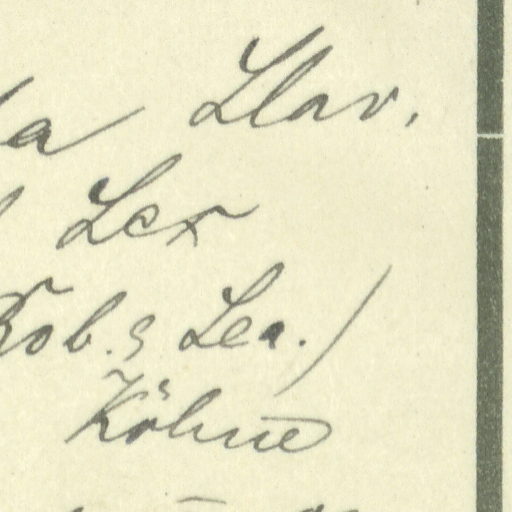 a Llav.
Lex
Rob. & Lea.)
Köhne